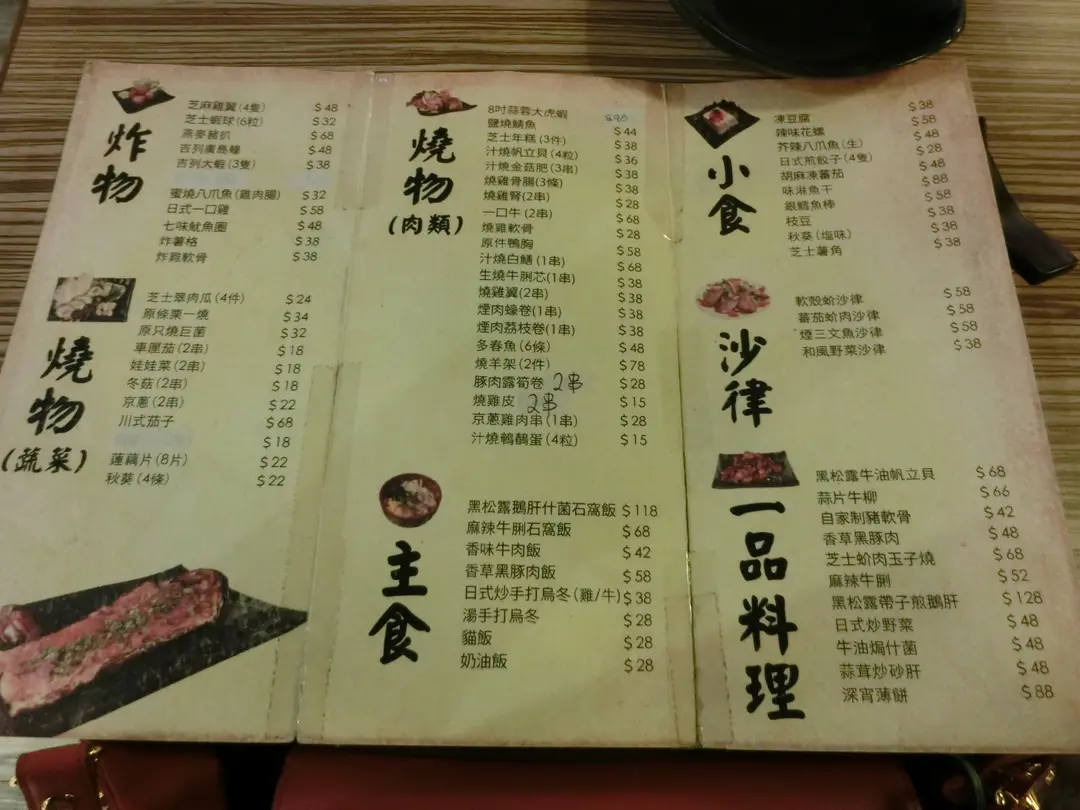 炸物
芝麻雞翼(4隻) $48
芝士蝦球(6粒) $32
燕麥豬扒 $68
吉列廣島蠔 $48
吉列大蝦(3隻) $38
蜜燒八爪魚(雞肉腸) $32
日式一口雞 $58
七味魷魚圈 $48
炸薯格 $38
炸雞軟骨 $38
燒物
(蔬菜)
芝士翠肉瓜(4件) $24
原條栗一燒 $34
原只燒巨菌 $32
車厘茄(2串) $18
娃娃菜(2串) $18
冬菇(2串) $18
京蔥(2串) $22
川式茄子 $68
$18
蓮藕片(8片) $22
秋葵(4條) $22
燒物
(肉類)
8吋蒜蓉大虎蝦
鹽燒鯖魚 $44
芝士年糕(3件) $38
汁燒帆立貝(4粒) $36
汁燒金菇肥(3串) $38
燒雞骨腸(3條) $38
燒雞腎(2串) $28
一口牛(2串) $68
燒雞軟骨 $28
原件鴨胸 $58
汁燒白鱔(1串) $68
生燒牛脷芯(1串) $38
燒雞翼(2串) $38
煙肉蠔卷(1串) $38
煙肉荔枝卷(1串) $38
多春魚(6條) $48
燒羊架(2件) $78
豚肉露筍卷 2串 $28
燒雞皮 2串 $15
京蔥雞肉串(1串) $28
汁燒鵪鶉蛋(4粒) $15
主食
黑松露鵝肝什菌石窩飯 $118
麻辣牛脷石窩飯 $68
香味牛肉飯 $42
香草黑豚肉飯 $58
日式炒手打烏冬(雞/牛) $38
湯手打烏冬 $28
貓飯 $28
奶油飯 $28
小食
凍豆腐 $38
辣味花螺 $58
芥辣八爪魚(生) $48
日式煎餃子(4隻) $28
胡麻凍蕃茄 $48
味淋魚干 $88
銀鱈魚棒 $58
枝豆 $38
秋葵(塩味) $38
芝士薯角 $38
沙律
軟殼蚧沙律 $58
蕃茄蚧肉沙律 $58
煙三文魚沙律 $58
和風野菜沙律 $38
一品料理
黑松露牛油帆立貝 $68
蒜片牛柳 $66
自家制豬軟骨 $42
香草黑豚肉 $48
芝士蚧肉玉子燒 $68
麻辣牛脷 $52
黑松露帶子煎鵝肝 $128
日式炒野菜 $48
牛油焗什菌 $48
蒜茸炒砂肝 $48
深宵薄餅 $88